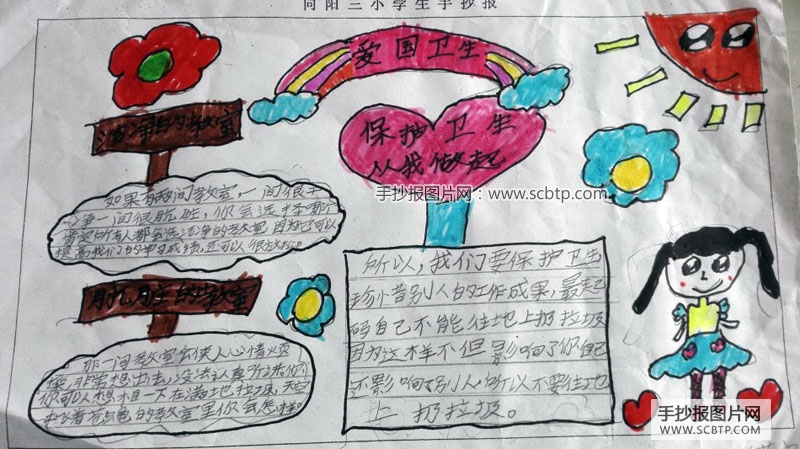 向阳三小学生手抄报
爱国卫生
洁净的教室
保护卫生
从我做起
手抄报图片网:www.scbtp.com
如果有两间教室,一间很干
净一间很肮脏,你会选择哪个
肯定所有人都会选洁净的教室,因为它可以
提高我们的学习成绩,还可以很放松。
肮脏的教室
那一间教室会使人心情烦
躁,非常想出去,没法认真听老师
你可以想相一下在满地垃圾,天空
教室里你会怎样
所以,我们要保护卫生
珍惜别人的工作成果,最起
码自己不能往地上扔垃圾
因为这样不但影响了你自己
还影响了别人,所以不要往地
上扔垃圾。
手抄报图片网
WWW.SCBTP.COM